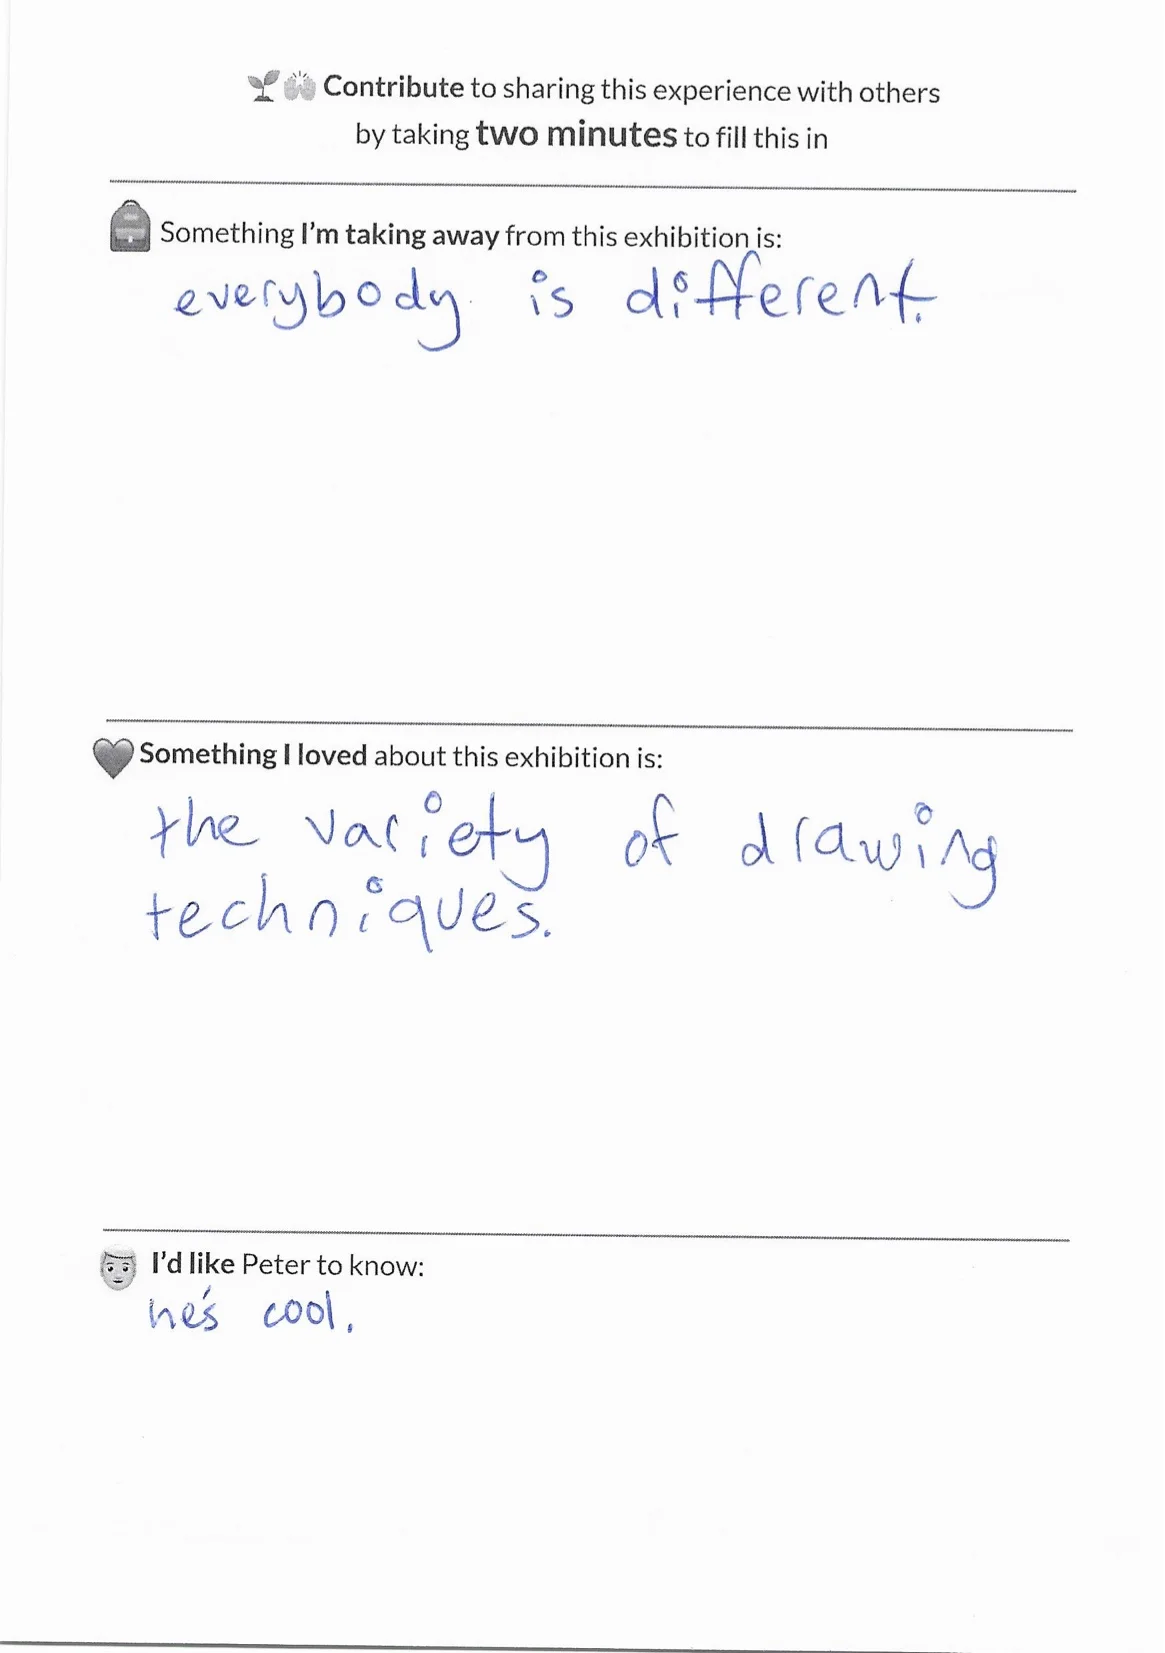 Contribute to sharing this experience with others
by taking two minutes to fill this in
Something I'm taking away from this exhibition is:
everybody is different.
Something I loved about this exhibition is:
the variety of drawing
techniques.
I'd like Peter to know:
he's cool.